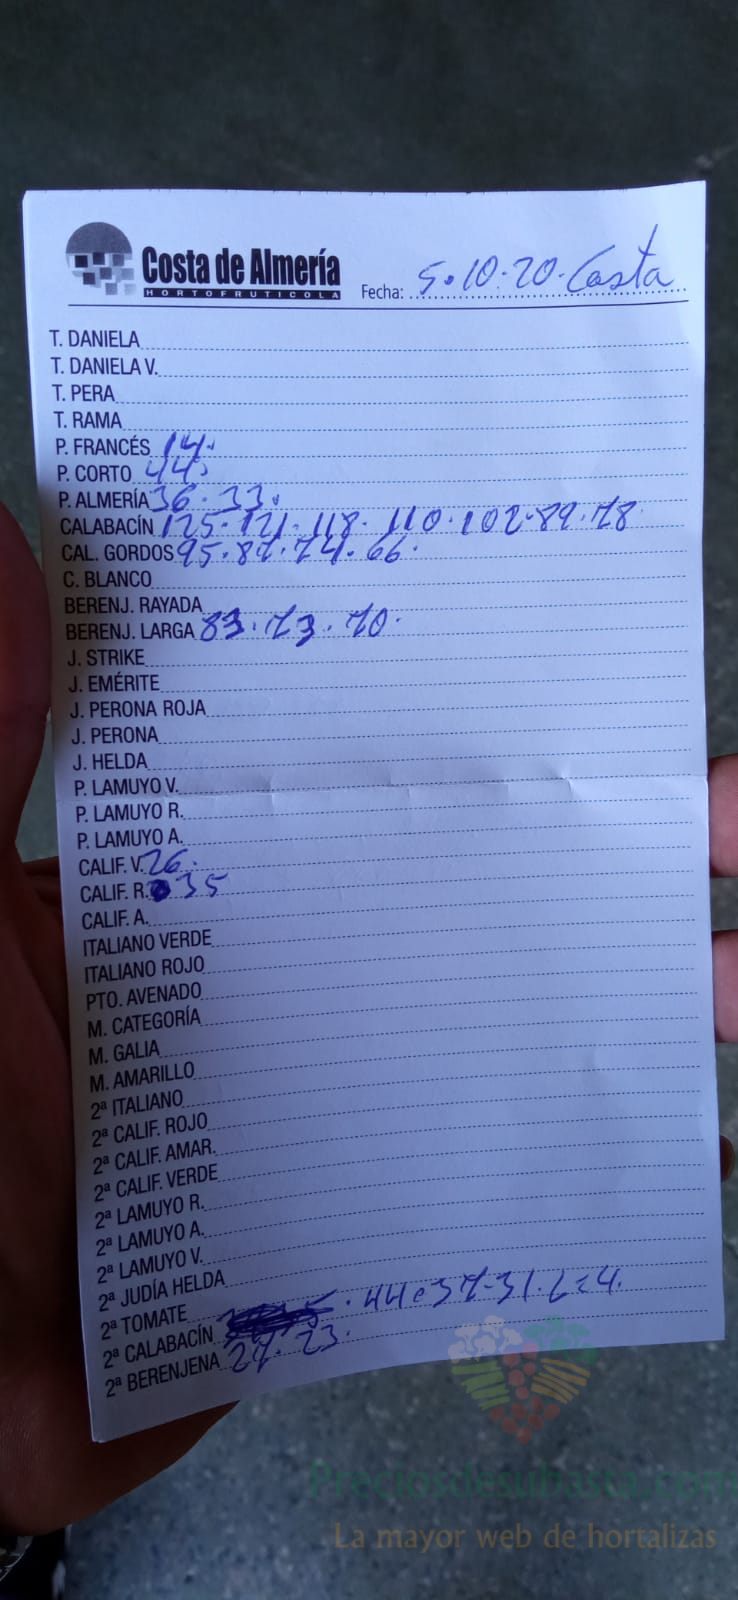 Costa de Almería
HORTOFRUTICOLA
Fecha: 5.10.20. Costa
T. DANIELA
T. DANIELA V.
T. PERA
T. RAMA
P. FRANCÉS 14.
P. CORTO 44.
P. ALMERÍA 36.33.
CALABACÍN 125.121.118.110.102.89.78
CAL. GORDOS 95.87.74.66.
C. BLANCO
BERENJ. RAYADA
BERENJ. LARGA 83.73.70.
J. STRIKE
J. EMÉRITE
J. PERONA ROJA
J. PERONA
J. HELDA
P. LAMUYO V.
P. LAMUYO R.
P. LAMUYO A.
CALIF. V. 26.
CALIF. R. 35
CALIF. A.
ITALIANO VERDE
ITALIANO ROJO
PTO. AVENADO
M. CATEGORÍA
M. GALIA
M. AMARILLO
2ª ITALIANO
2ª CALIF. ROJO
2ª CALIF. AMAR.
2ª CALIF. VERDE
2ª LAMUYO R.
2ª LAMUYO A.
2ª LAMUYO V.
2ª JUDÍA HELDA
2ª TOMATE
2ª CALABACÍN . 44.37.31.
2ª BERENJENA 27.23.
Preciosdesubasta.com
La mayor web de hortalizas